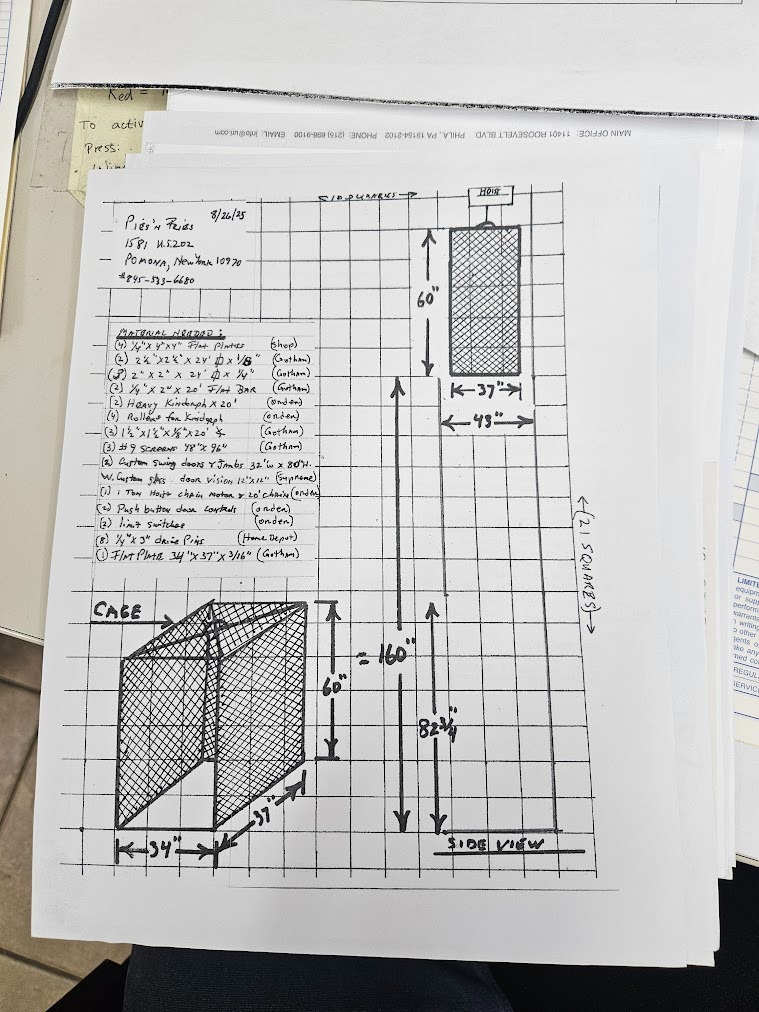 Red =
To activ
Press:
MAIN OFFICE: 11401 ROOSEVELT BLVD PHILA, PA 19154-2102 PHONE: (215) 698-9100 EMAIL: info@uri.com
8/26/25
1581 U.S.202
POMONA, New York 10970
#845-533-6680
MATERIAL NEEDED:
(4) 1/4" X 4" X 4" Flat Plates (Shop)
(2) 2 1/2" X 2 1/2" X 24' X 1/8" (Gotham)
2" X 2" X 24' X 1/4" (Gotham)
(2) 1/4" X 2" X 20' Flat BAR (Gotham)
(2) Heavy Kindorph X 20' (order)
(4) Rollers for Kindorph (order)
(3) 1 1/2" X 1 1/2" X 1/8" X 20' (Gotham)
(3) #9 SCREENS 48" X 96" (Gotham)
(2) Custom Swing doors & Jambs 32"w X 80"H.
W. Custom glass door vision 12"X12" (Supreme)
(1) 1 Ton Hoist chain Motor & 20' Chain (order)
(2) Push button door controls (order)
(3) limit switches (order)
(8) 1/4" X 3" drive Pins (Home Depot)
(1) Flat Plate 34" X 37" X 3/16" (Gotham)
60"
37"
43"
(21 SQUARES)
CAGE
60"
= 160"
82 3/4"
37"
34"
SIDE VIEW
LIMITE
equipm
or supp
perform
warrant
n writing
other
gents o
ake any
med co
REGUL
SERVIC